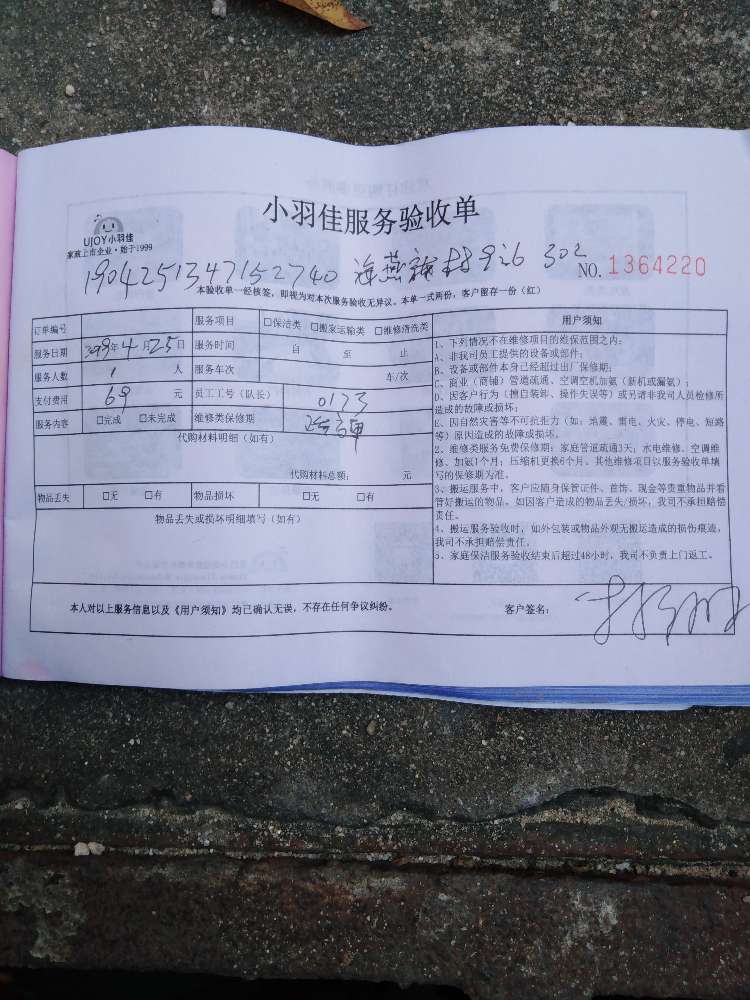 小羽佳服务验收单
UJOY小羽佳
家政上市企业·始于1999
1904251347152740 海燕新村 302
NO. 1364220
本验收单一经核签，即视为对本次服务验收无异议。本单一式两份，客户留存一份（红）
订单编号 服务项目 □保洁类 □搬家运输类 □维修清洗类
服务日期 年4月25日 服务时间 自 至 止
服务人数 1 人 服务车次 车/次
支付费用 69 元 员工工号（队长） 0173
服务内容 □完成 □未完成 维修类保修期
代购材料明细（如有）
代购材料总额： 元
物品丢失 □无 □有 物品损坏 □无 □有
物品丢失或损坏明细填写（如有）
用户须知
1、下列情况不在维修项目的维保范围之内：
A、非我司员工提供的设备或部件；
B、设备或部件本身已经超过出厂保修期；
C、商业（商铺）管道疏通、空调空机加氨（新机或漏氨）；
D、因客户行为（擅自装卸、操作失误等）或另请非我司人员检修所
造成的故障或损坏；
E、因自然灾害等不可抗拒力（如：地震、雷电、火灾、停电、短路
等）原因造成的故障或损坏。
2、维修类服务免费保修期：家庭管道疏通3天；水电维修、空调维
修、加氨1个月；压缩机更换6个月。其他维修项目以服务验收单填
写的保修期为准。
3、搬运服务中，客户应随身保管证件、首饰、现金等贵重物品并看
管好搬运的物品。如因客户造成的物品丢失/损坏，我司不承担赔偿
责任。
4、搬运服务验收时，如外包装或物品外观无搬运造成的损伤痕迹，
我司不承担赔偿责任。
5、家庭保洁服务验收结束后超过48小时，我司不负责上门返工。
本人对以上服务信息以及《用户须知》均已确认无误，不存在任何争议纠纷。 客户签名：